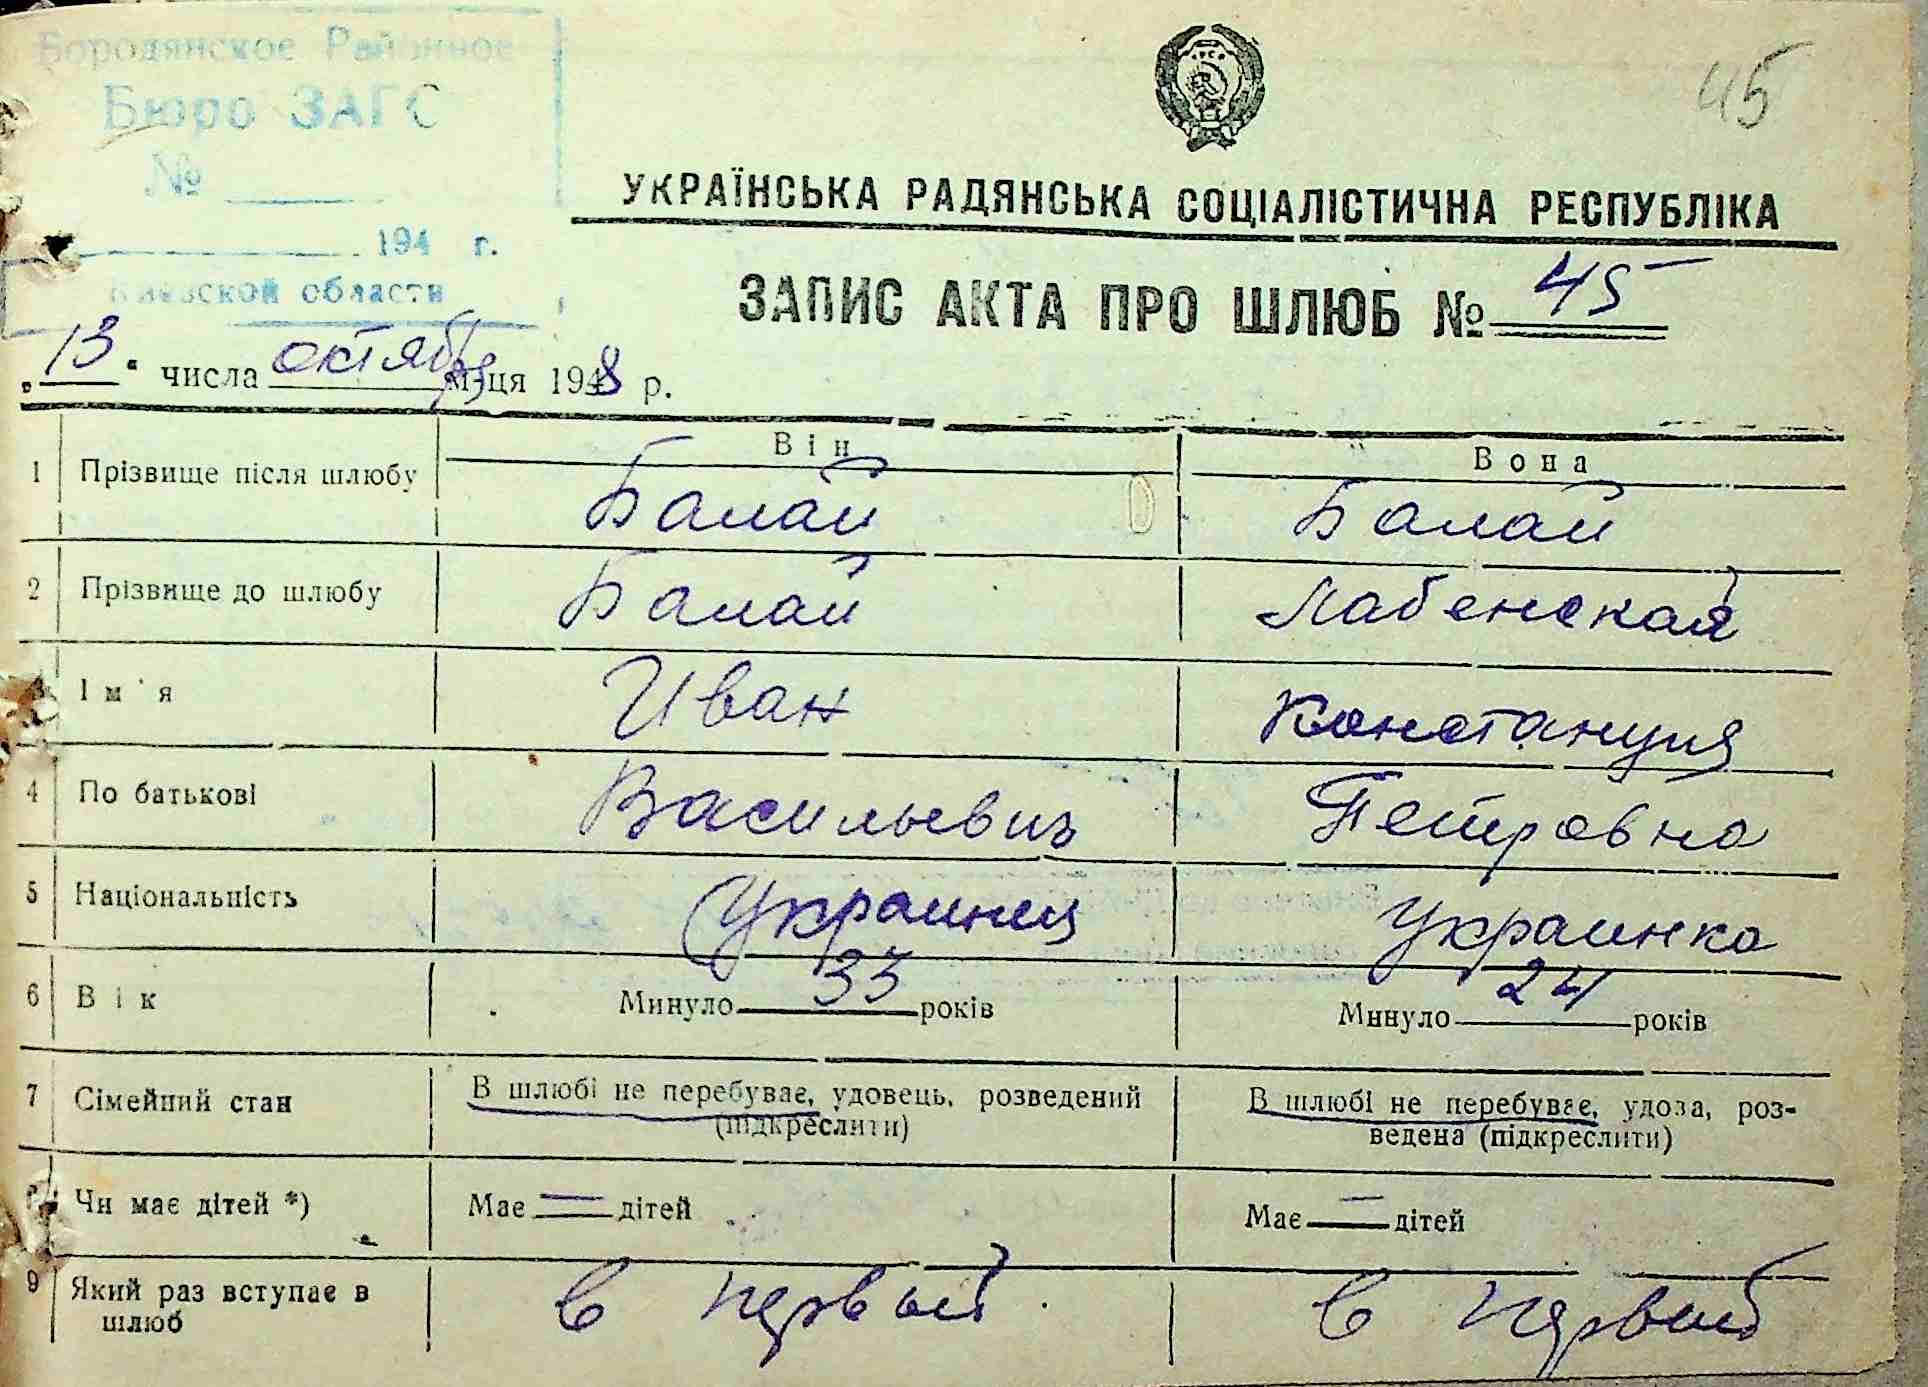 45
Бородянское Районное
Бюро ЗАГС
№
194 г.
Киевской области
УКРАЇНСЬКА РАДЯНСЬКА СОЦІАЛІСТИЧНА РЕСПУБЛІКА
ЗАПИС АКТА ПРО ШЛЮБ № 45
„13“ числа октября м-ця 1948 р.
Він Вона
1 Прізвище після шлюбу Балай Балай
2 Прізвище до шлюбу Балай Лабенская
3 Ім'я Иван Констанция
4 По батькові Васильевич Петровна
5 Національність Украинец Украинка
6 Вік Минуло 33 років Минуло 24 років
7 Сімейний стан В шлюбі не перебуває, удовець, розведений В шлюбі не перебуває, удова, роз-
(підкреслити) ведена (підкреслити)
8 Чи має дітей *) Має — дітей Має — дітей
9 Який раз вступає в в первый в первый
шлюб